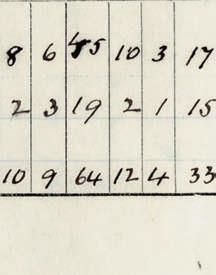 8 6 45 10 3 17
2 3 19 2 1 15
10 9 64 12 4 33